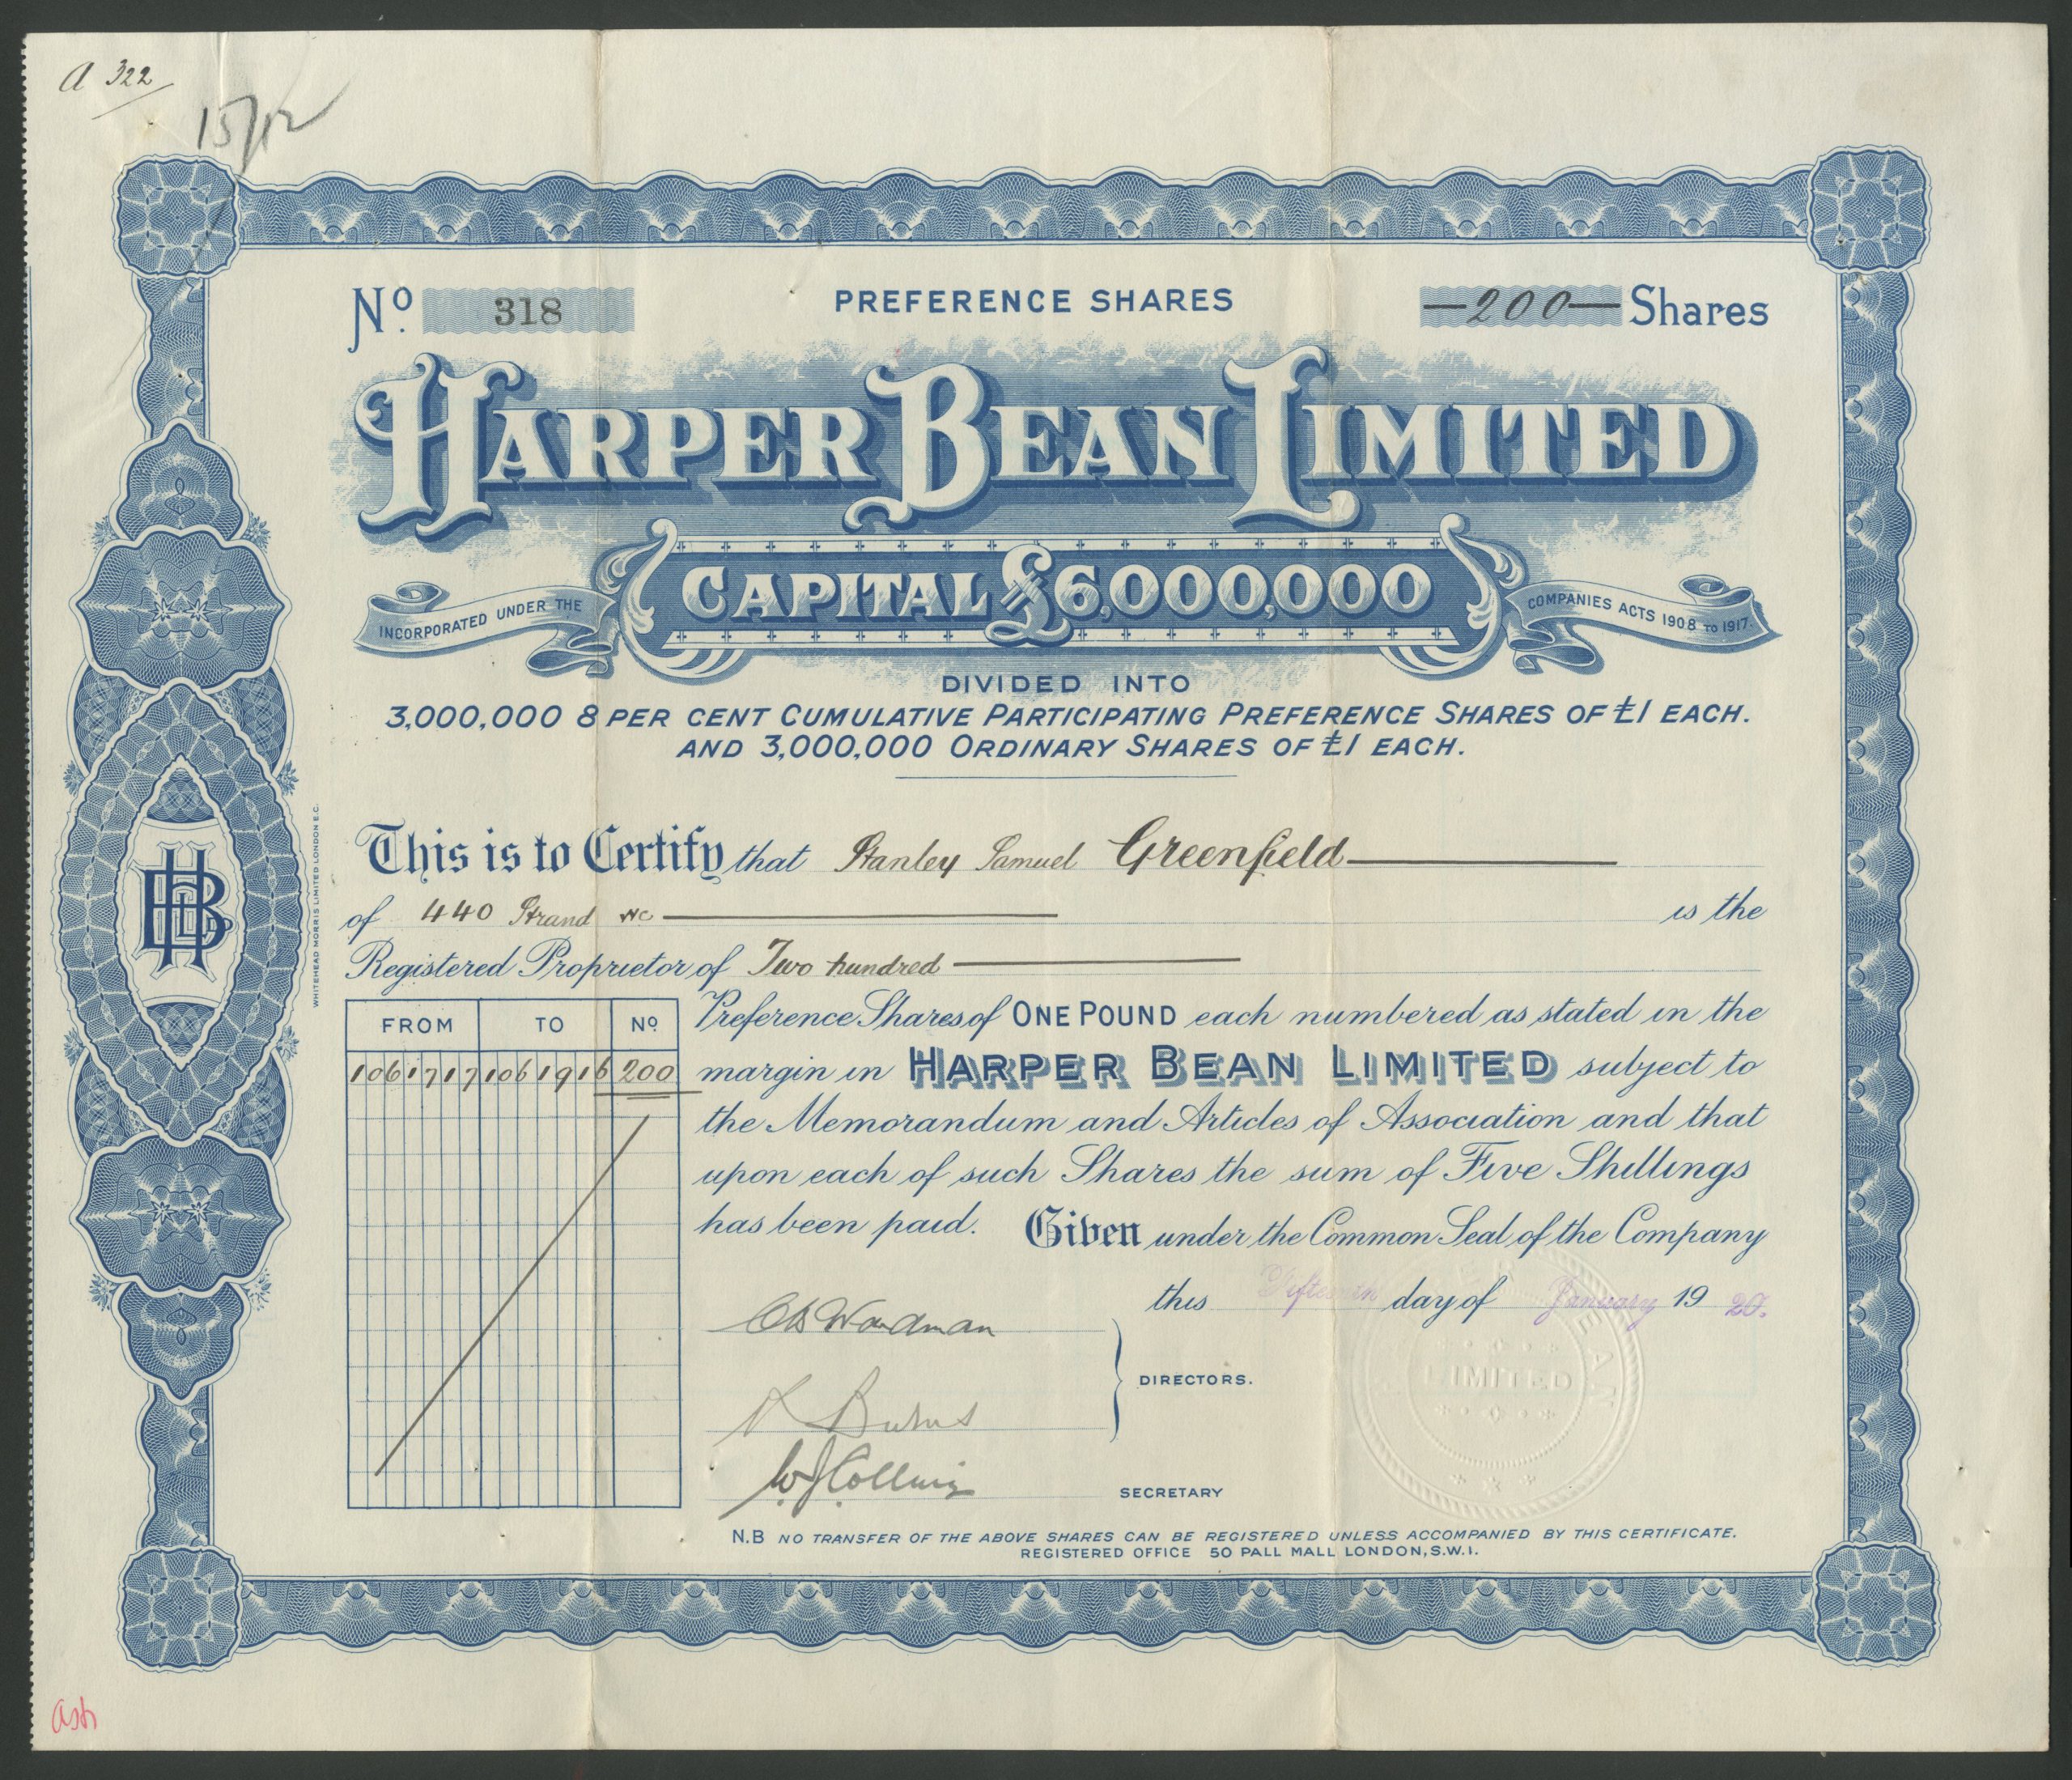 A 322
15/12
No. 318 PREFERENCE SHARES —200— Shares
HARPER BEAN LIMITED
CAPITAL £6,000,000
INCORPORATED UNDER THE COMPANIES ACTS 1908 TO 1917.
DIVIDED INTO
3,000,000 8 PER CENT CUMULATIVE PARTICIPATING PREFERENCE SHARES OF £1 EACH.
AND 3,000,000 ORDINARY SHARES OF £1 EACH.
This is to Certify that Stanley Samuel Greenfield
of 440 Strand WC is the
Registered Proprietor of Two hundred
FROM TO No
1061717 1061916 200
Preference Shares of ONE POUND each numbered as stated in the
margin in HARPER BEAN LIMITED subject to
the Memorandum and Articles of Association and that
upon each of such Shares the sum of Five Shillings
has been paid. Given under the Common Seal of the Company
this Fifteenth day of January 19 20.
DIRECTORS.
W J Colling
SECRETARY
LIMITED
N.B NO TRANSFER OF THE ABOVE SHARES CAN BE REGISTERED UNLESS ACCOMPANIED BY THIS CERTIFICATE.
REGISTERED OFFICE 50 PALL MALL LONDON, S.W.1.
HBL
WHITEHEAD MORRIS LIMITED LONDON E.C.